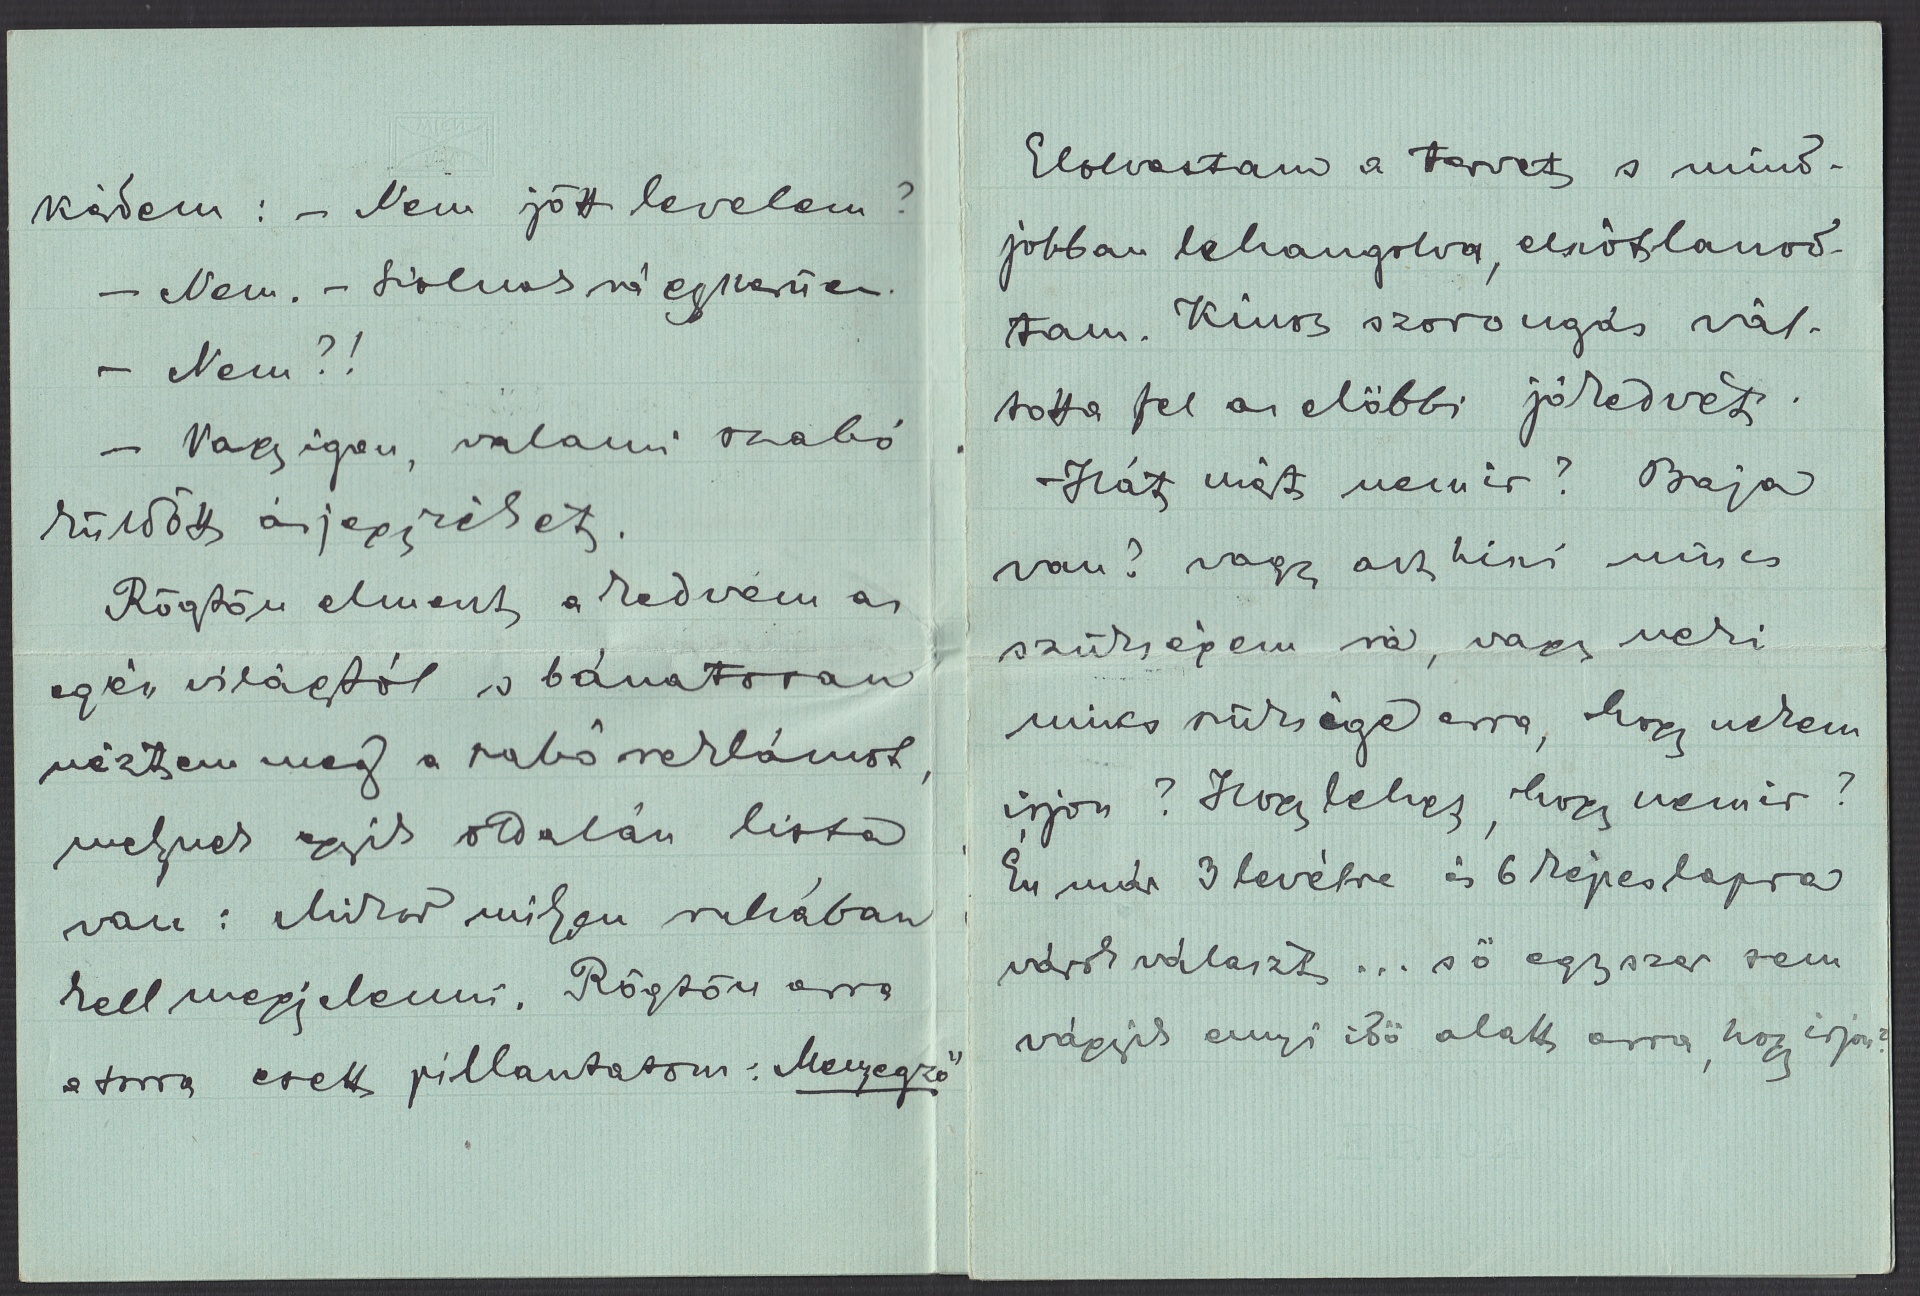 kérdem: – Nem jött levelem?
– Nem. – szólnak rá egyszerüen.
– Nem?!
– Vagy igen, valami szabó
küldött árjegyzéket.
Rögtön elment a kedvem az
egész világtól s bánatosan
néztem meg a szabó reklámot,
melynek egyik oldalán lista
van: Mikor milyen ruhában
kell megjelenni. Rögtön arra
a sorra esett pillantatom: Menyegző
Elolvastam a tervet s mind-
jobban lehangolva, elszótlanod-
tam. Kinos szorongás vál-
totta fel az elöbbi jókedvét.
– Hát miért nem ir? Baja
van? vagy azt hiszi nincs
szükségem rá, vagy neki
nincs szüksége arra, hogy nekem
irjon? Hogy lehet, hogy nem ir?
Én már 3 levélre és 6 képeslapra
várok választ ... s ö egyszer sem
vágyik ennyi idö alatt arra, hogy irjon?